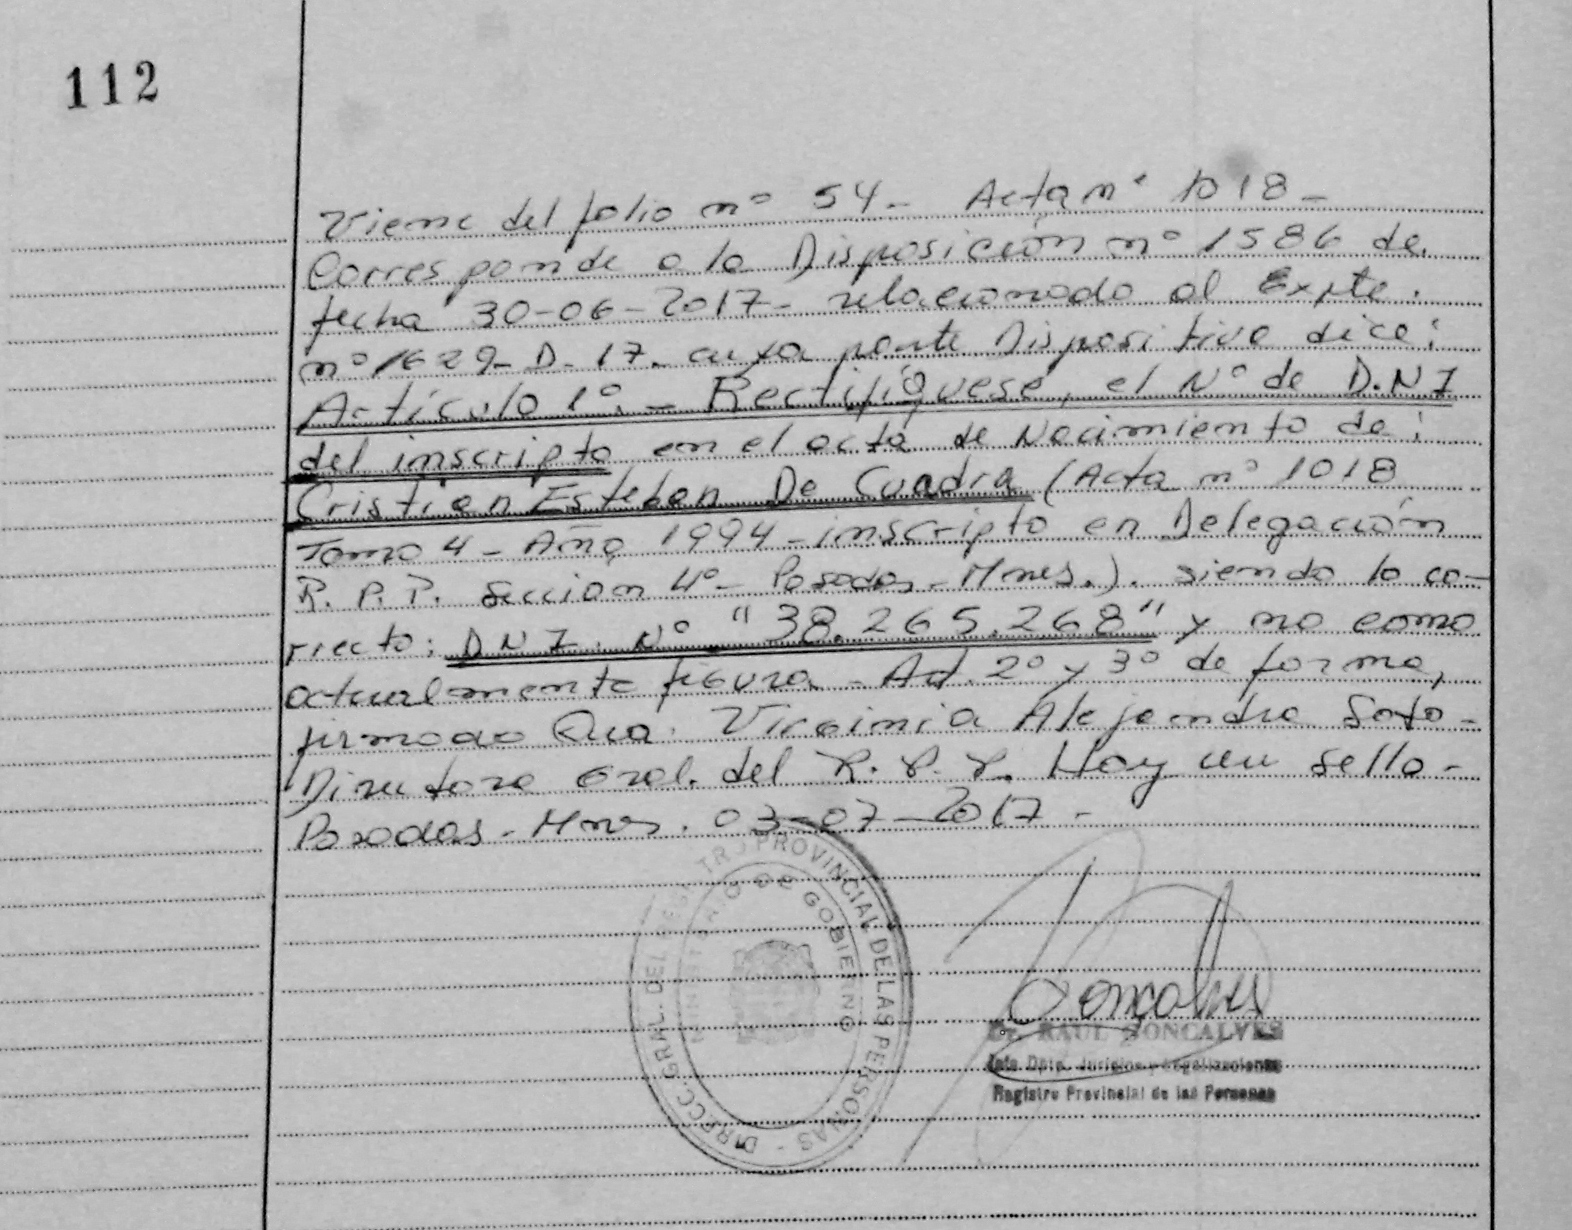 112
Viene del folio nº 54 - Acta nº 1018 -
Corresponde a la Disposición nº 1586 de
fecha 30-06-2017- relacionado al Expte.
nº 1629-D-17- cuya parte Dispositiva dice:
Artículo 1º. - Rectifíquese, el Nº de D.N.I
del inscripto en el acta de Nacimiento de:
Cristian Esteban De Cuadra (Acta nº 1018
Tomo 4 - Año 1994 - inscripto en Delegación
R. P. P. Sección 4º - Posadas - Mnes.). siendo lo co-
rrecto: D N I. Nº "38.265.268" y no como
actualmente figura - Art. 2º y 3º de forma,
firmado Virginia Alejandra Soto -
Directora Gral. del R. P. P. Hay un sello -
Posadas - Mnes. 03-07-2017 -
DIRECC. GRAL. DEL REGISTRO PROVINCIAL DE LAS PERSONAS -
MINISTERIO DE GOBIERNO
Goncalves
Dr. RAUL GONCALVES
Jefe Dpto. Jurídico y Legalizaciones
Registro Provincial de las Personas